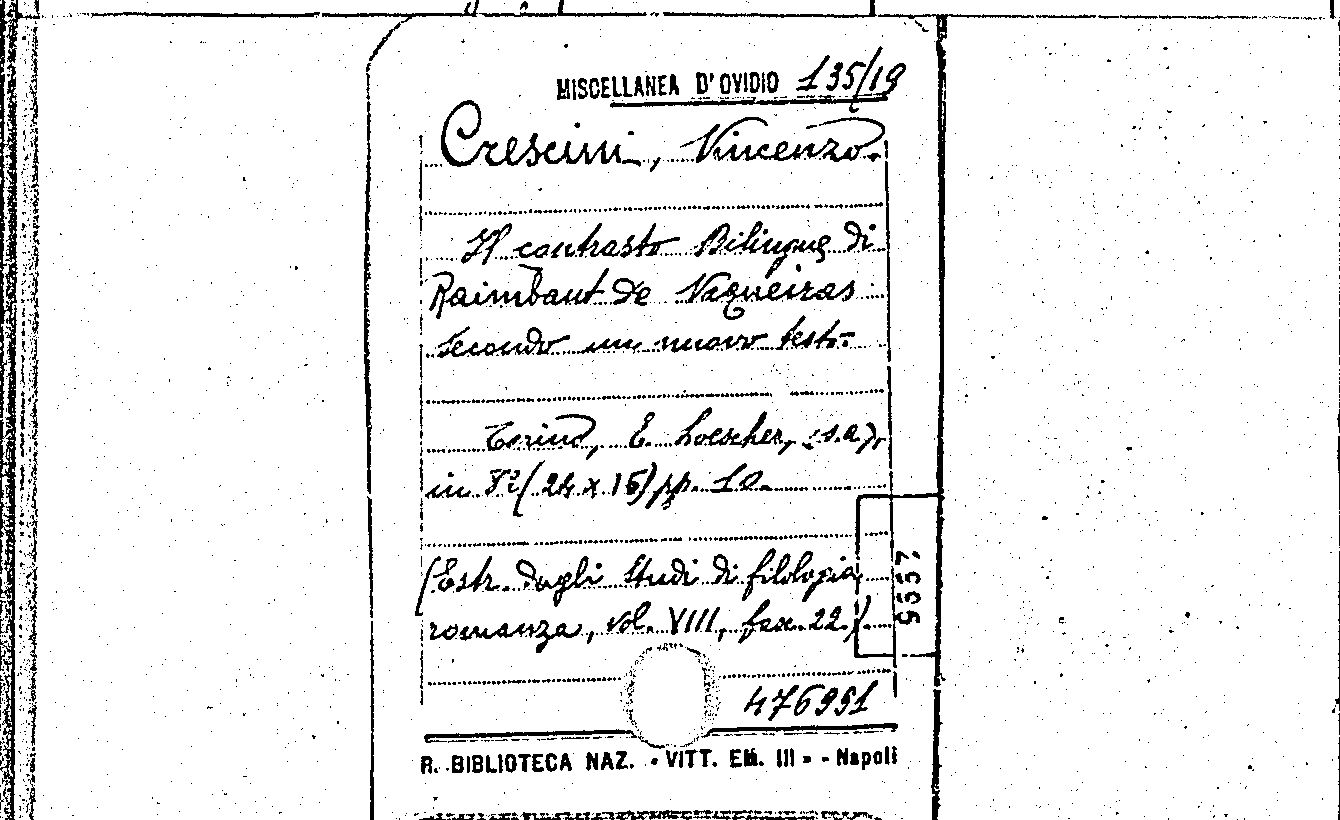 MISCELLANEA D'OVIDIO 135/19
Crescini, Vincenzo.
Il contrasto Bilingue di
Raimbaut de Vaqueiras
secondo un nuovo testo.
Torino, E. Loescher, (s.a.),
in 8º (24 x 16) pp. 10.
(Estr. dagli Studi di filologia
romanza, vol. VIII, fasc. 22.).
9557
476991
R. BIBLIOTECA NAZ. «VITT. EM. III» - Napoli